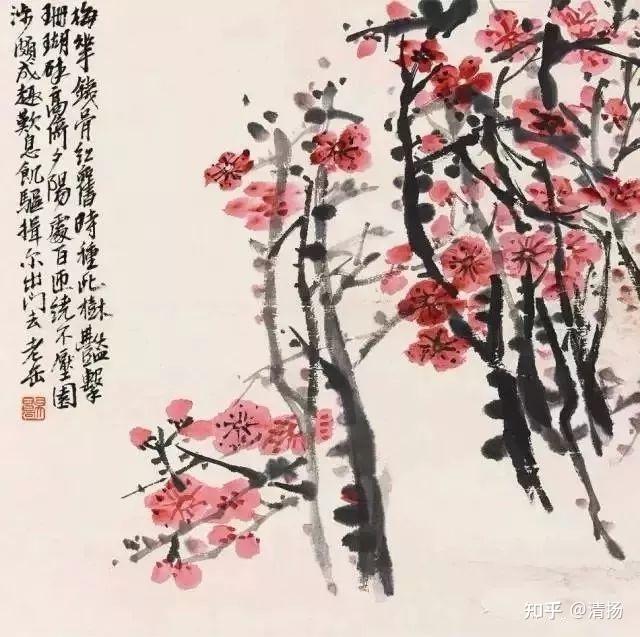 梅華鐵骨紅舊時種此樹豔擊
珊瑚碎高倚夕陽處百匝繞不厭園
涉頗成趣歎息飢驅揮尔出門去 老缶
知乎 @清扬